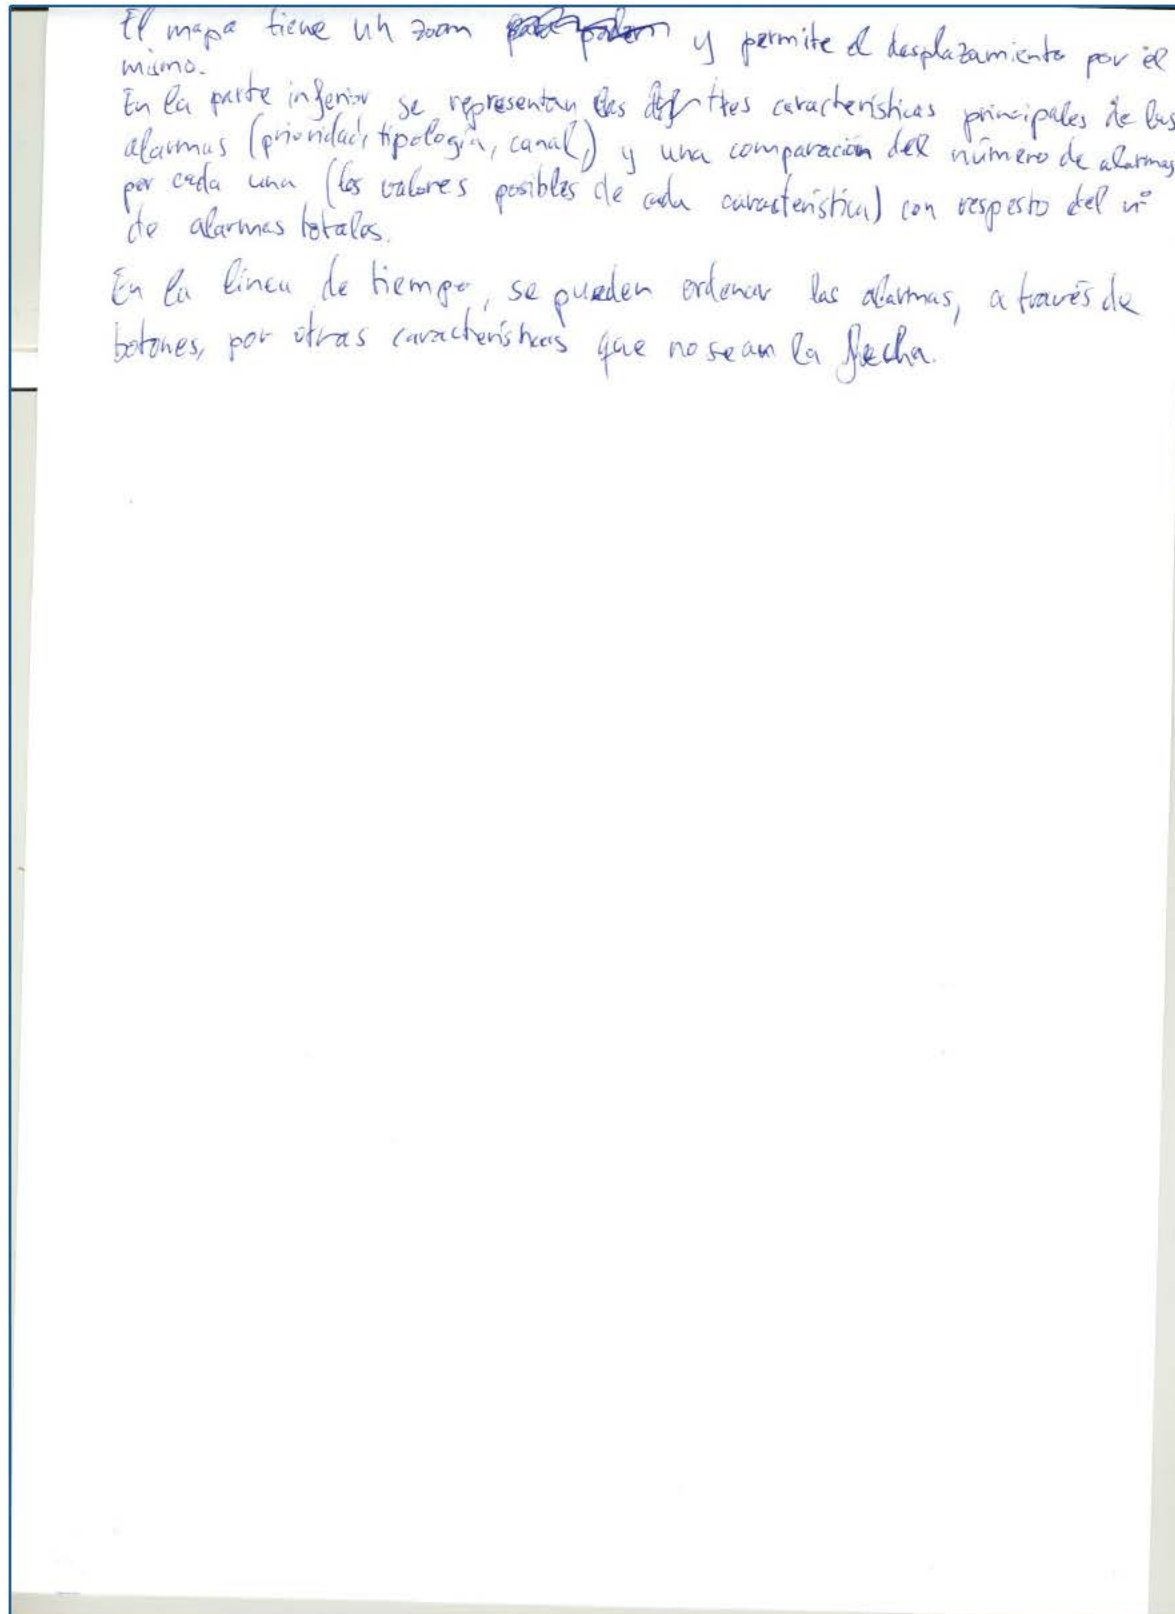 El mapa tiene un zoom y permite el desplazamiento por el
mismo.
En la parte inferior se representan las tres características principales de las
alarmas (prioridad, tipología, canal,) y una comparación del número de alarmas
por cada una (los valores posibles de cada característica) con respesto del nº
de alarmas totales.
En la línea de tiempo, se pueden ordenar las alarmas, a través de
botones, por otras características que no sean la fecha.